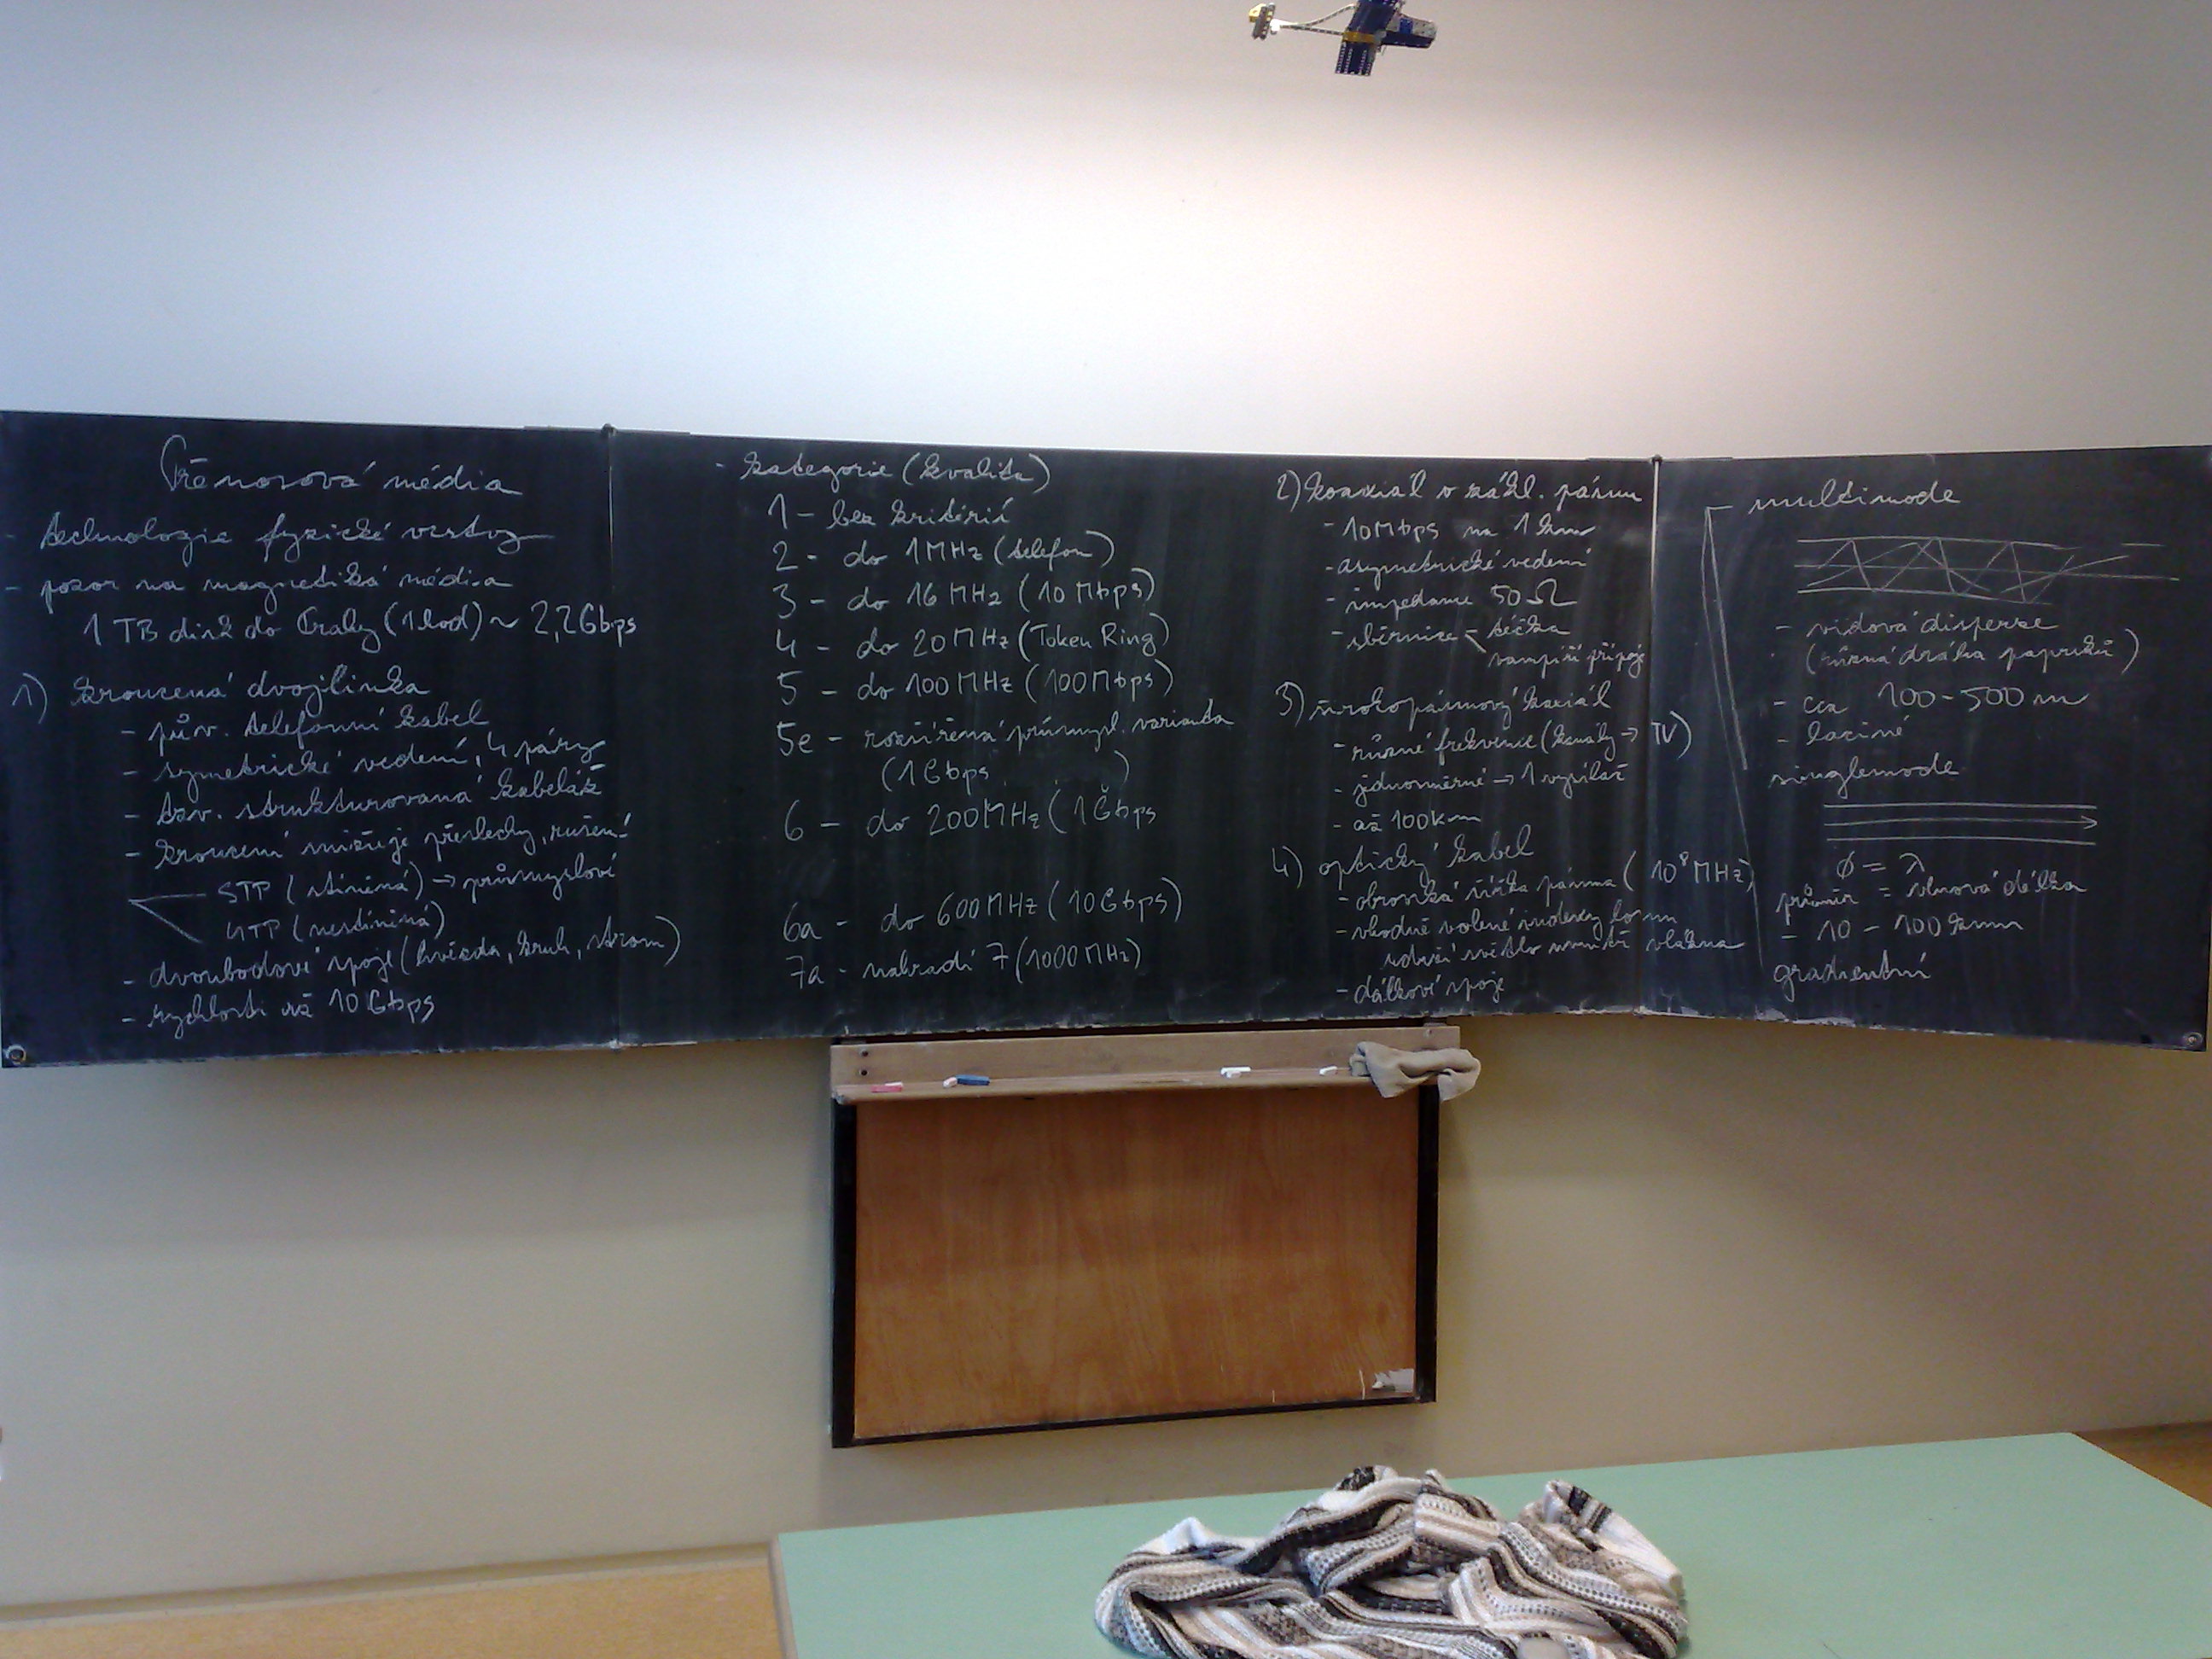 Přenosová média
- technologie fyzické vrstvy
- pozor na magnetická média
1 TB disk do Prahy (1 hod) ~ 2,2Gbps
1) kroucená dvojlinka
- pův. telefonní kabel
- symetrické vedení, 4 páry
- tzv. strukturovaná kabeláž
- kroucení snižuje přeslechy, rušení
STP (stíněná) → průmyslové
UTP (nestíněná)
- dvoubodové spoje (hvězda, kruh, strom)
- rychlosti až 10 Gbps
- kategorie (kvalita)
1 - bez kritérií
2 - do 1MHz (telefon)
3 - do 16 MHz (10 Mbps)
4 - do 20MHz (Token Ring)
5 - do 100MHz (100Mbps)
5e - rozšířená průmysl. varianta
(1Gbps )
6 - do 200MHz (1Gbps
6a - do 600MHz (10Gbps)
7a - nahradí 7 (1000MHz)
2) koaxiál v zákl. pásmu
- 10Mbps na 1 km
- asymetrické vedení
- impedance 50Ω
- sběrnice - téčka
vampíří přípoje
3) širokopásmový koaxiál
- různé frekvence (kanály → TV)
- jednosměrné → 1 vysílač
- až 100km
4) optický kabel
- obrovská šířka pásma (10⁸MHz)
- vhodně volené indexy lomu
udrží světlo uvnitř vlákna
- dálkové spoje
multimode
- vidová disperze
(různá dráha paprsků)
- cca 100-500 m
- laciné
singlemode
ϕ = λ
průměr = vlnová délka
- 10 - 100 km
gradientní